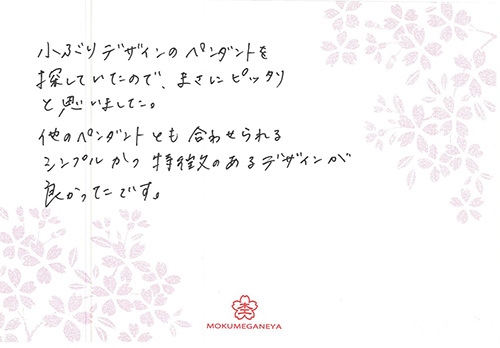 小ぶりデザインのペンダントを
探していたので、まさにピッタリ
と思いました。
他のペンダントとも合わせられる
シンプルかつ特徴のあるデザインが
良かったです。
杢
MOKUMEGANEYA